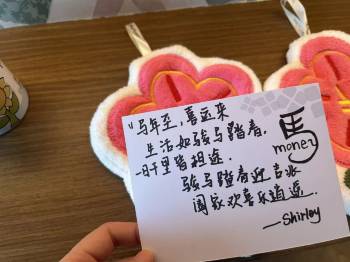 "马年至，喜运来
生活如骏马踏春，
一日千里皆坦途．
骏马踏春迎吉兆
阖家欢喜乐逍遥．
—Shirley
馬
money